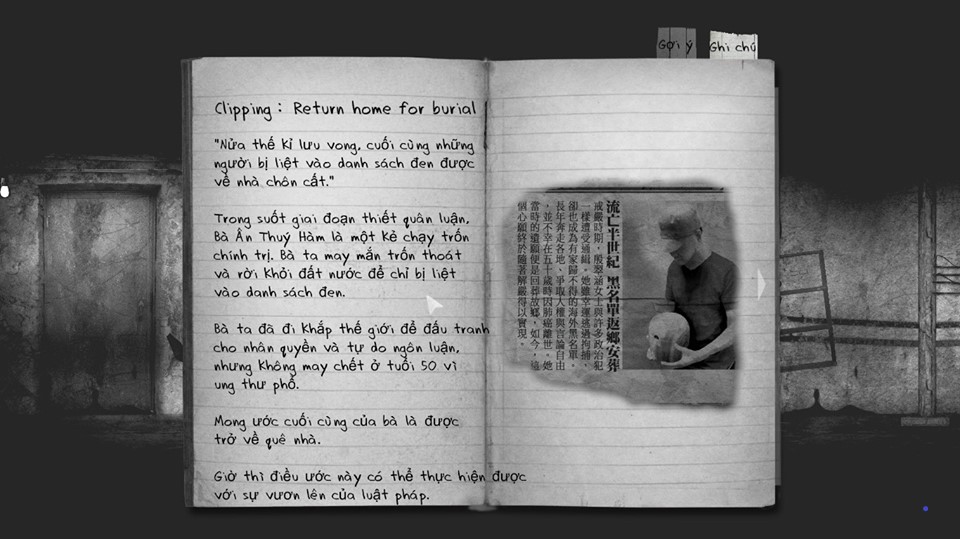 Gợi ý
Ghi chú
Clipping : Return home for burial
"Nửa thế kỉ lưu vong, cuối cùng những
người bị liệt vào danh sách đen được
về nhà chôn cất."
Trong suốt giai đoạn thiết quân luận,
Bà Ân Thuý Hàm là một kẻ chạy trốn
chính trị. Bà ta may mắn trốn thoát
và rời khỏi đất nước để chỉ bị liệt
vào danh sách đen.
Bà ta đã đi khắp thế giới để đấu tranh
cho nhân quyền và tự do ngôn luận,
nhưng không may chết ở tuổi 50 vì
ung thư phổ.
Mong ước cuối cùng của bà là được
trở về quê nhà.
Giờ thì điều ước này có thể thực hiện được
với sự vươn lên của luật pháp.
流亡半世紀 黑名單返鄉安葬
戒嚴時期，殷翠涵女士與許多政治犯
一樣遭受通緝。她雖幸運逃過拘捕，
卻也成為有家歸不得的海外黑名單。
長年奔走各地、爭取人權與言論自由
，並不幸在五十歲時因肺癌離世。她
當時的遺願便是回葬故鄉，如今，這
個心願終於隨著解嚴得以實現。